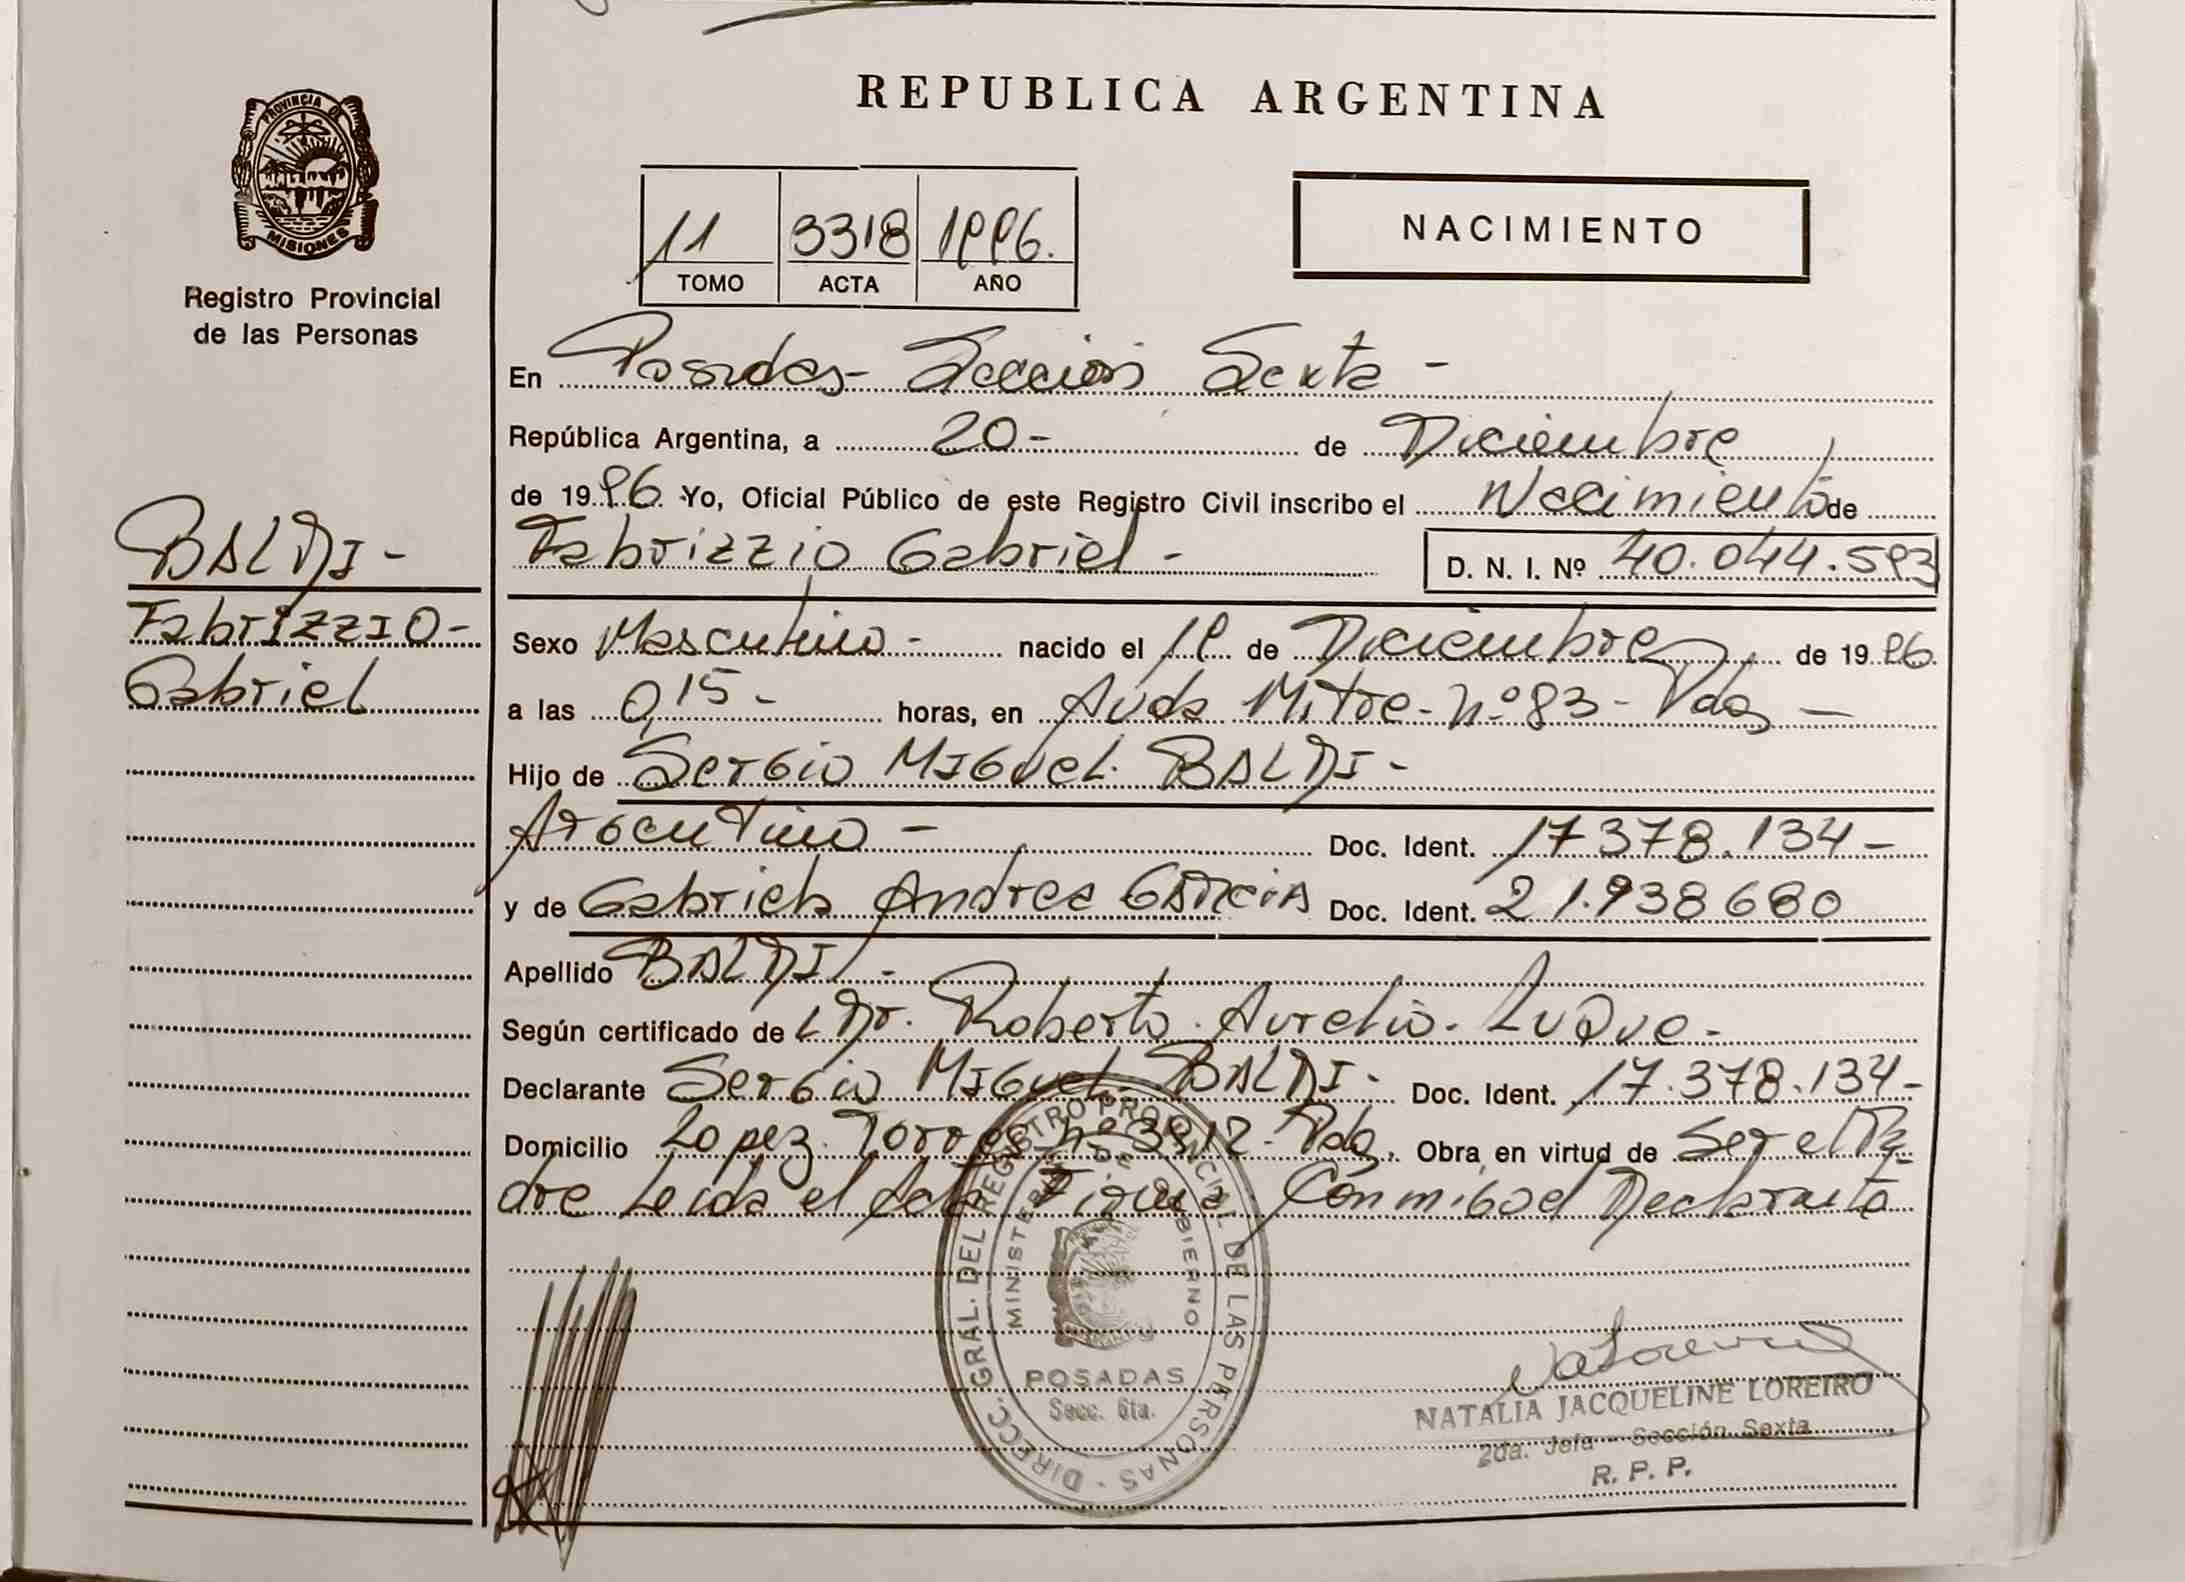 PROVINCIA DE
MISIONES
Registro Provincial
de las Personas
BALDI-
Fabrizzio-
Gabriel
REPUBLICA ARGENTINA
11 3318 1996.
TOMO ACTA AÑO
NACIMIENTO
En Posadas- Sección Sexta-
República Argentina, a 20- de Diciembre
de 1996. Yo, Oficial Público de este Registro Civil inscribo el Nacimiento de
Fabrizzio Gabriel- D. N. I. Nº 40.044.593
Sexo Masculino- nacido el 19 de Diciembre de 1996.
a las 0,15- horas, en Avda Mitre- nº 83- Pdas-
Hijo de Sergio Miguel BALDI-
Argentino- Doc. Ident. 17378.134-
y de Gabriela Andrea GARCIA Doc. Ident. 21.938680
Apellido BALDI-
Según certificado de L Dr. Roberto Aurelio Luque-
Declarante Sergio Miguel BALDI- Doc. Ident. 17.378.134-
Domicilio Lopez Torres nº 3912- Pdas. Obra en virtud de Ser el Pa
dre Leida el Acta Firma Conmigo el Declarante
DIRECC. GRAL. DEL REGISTRO PROVINCIAL DE LAS PERSONAS
MINISTERIO DE GOBIERNO
POSADAS
Secc. 6ta.
NATALIA JACQUELINE LOREIRO
2da. Jefa - Sección Sexta
R. P. P.